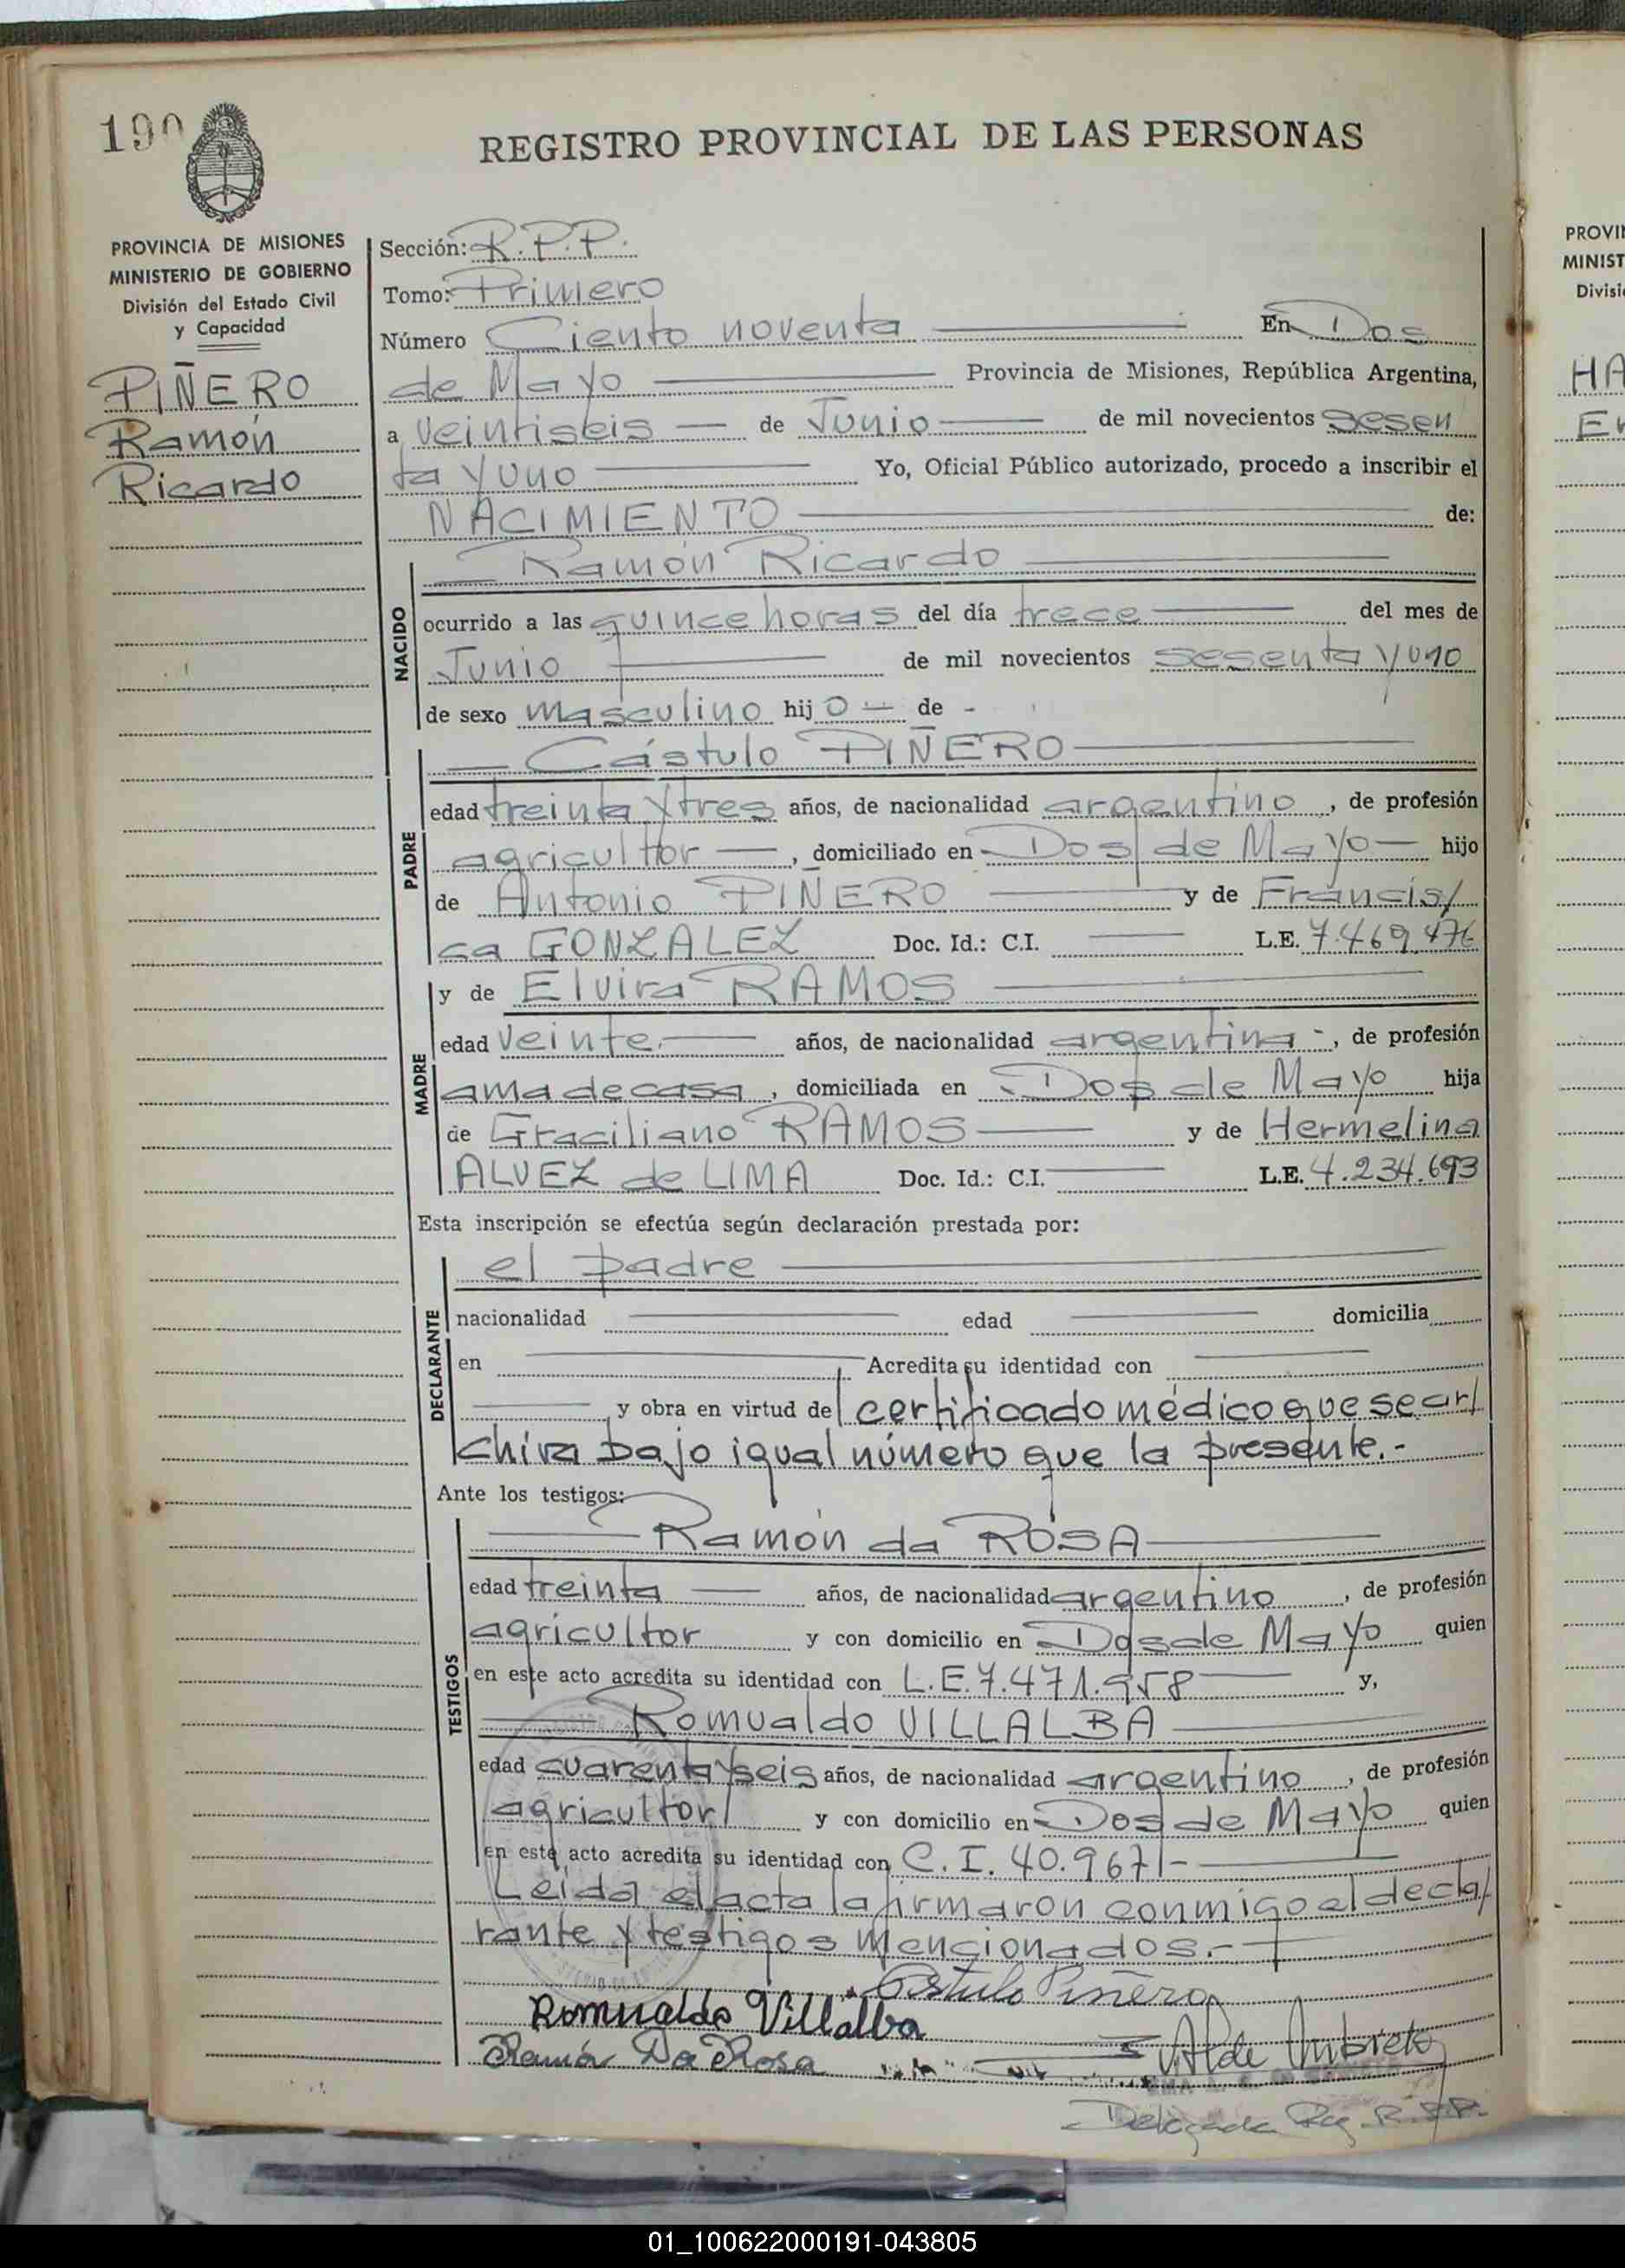 190
REGISTRO PROVINCIAL DE LAS PERSONAS
PROVINCIA DE MISIONES
MINISTERIO DE GOBIERNO
División del Estado Civil
y Capacidad
PIÑERO
Ramón
Ricardo
Sección: R.P.P.
Tomo: Primero
Número Ciento noventa En Dos
de Mayo Provincia de Misiones, República Argentina,
a veintiseis de Junio de mil novecientos sesen
ta y uno Yo, Oficial Público autorizado, procedo a inscribir el
NACIMIENTO de:
NACIDO
Ramón Ricardo
ocurrido a las quince horas del día trece del mes de
Junio de mil novecientos sesenta y uno
de sexo masculino hijo de
PADRE
Cástulo PIÑERO
edad treinta y tres años, de nacionalidad argentino, de profesión
agricultor, domiciliado en Dos de Mayo hijo
de Antonio PIÑERO y de Francis/
ca GONZALEZ Doc. Id.: C.I. L.E. 7.469.476
MADRE
y de Elvira RAMOS
edad veinte.- años, de nacionalidad argentina-, de profesión
ama de casa, domiciliada en Dos de Mayo hija
de Graciliano RAMOS y de Hermelina
ALVEZ de LIMA Doc. Id.: C.I. L.E. 4.234.693
Esta inscripción se efectúa según declaración prestada por:
DECLARANTE
el padre
nacionalidad edad domicilia
en Acredita su identidad con
y obra en virtud del certificado médico que se ar/
chiva bajo igual número que la presente.-
Ante los testigos:
TESTIGOS
Ramón da ROSA
edad treinta años, de nacionalidad argentino, de profesión
agricultor y con domicilio en Dos de Mayo quien
en este acto acredita su identidad con L.E. 7.471.958 y,
Romualdo VILLALBA
edad cuarenta y seis años, de nacionalidad argentino, de profesión
agricultor y con domicilio en Dos de Mayo quien
en este acto acredita su identidad con C.I. 40.967.-
Leida el acta la firmaron conmigo el decla/
rante y testigos mencionados.-
Cástulo Piñero
Romualdo Villalba
Ramón Da Rosa
Delegada R.P.P.
PROVI
MINIST
Divisi
HA
01_100622000191-043805